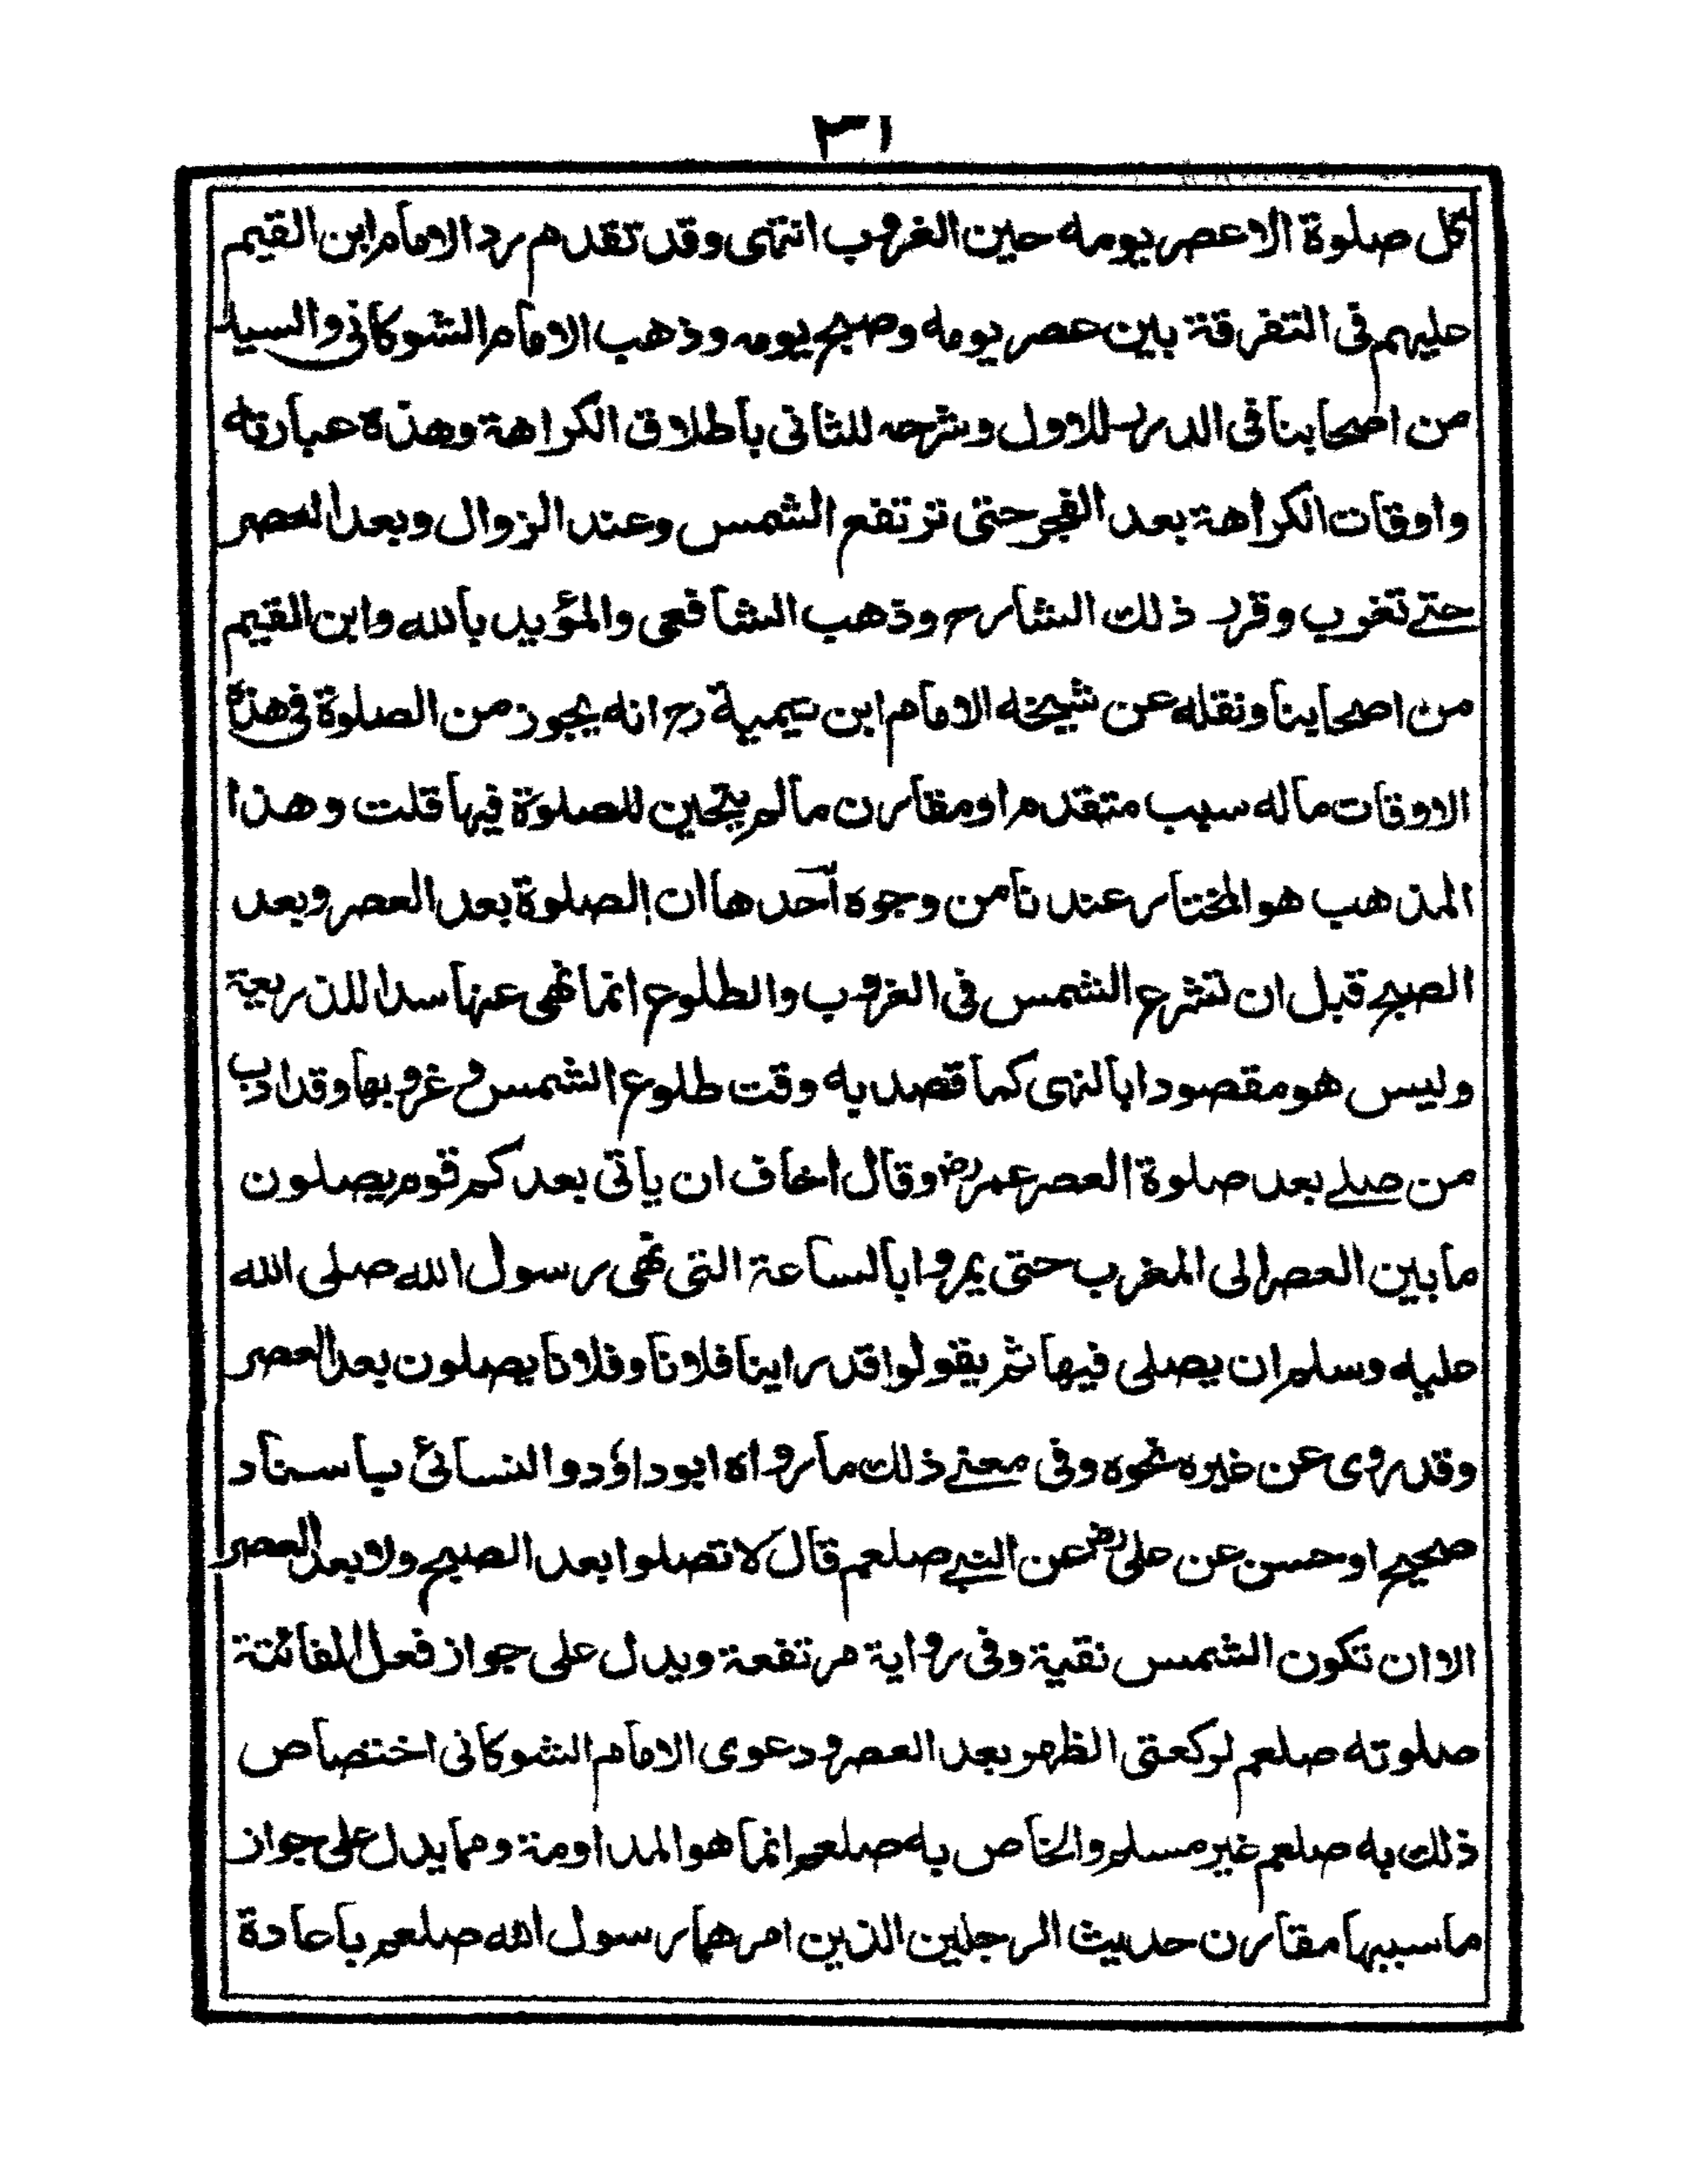 ٣١
كل صلوة الا عصر يومه حين الغروب انتهى وقد تقدم رد الامام ابن القيم
عليهم فى التفرقة بين عصر يومه وصبح يومه وذهب الامام الشوكانى والسيد
من اصحابنا فى الدرر للاول وشرحه للثانى باطلاق الكراهة وهذه عبارته
واوقات الكراهة بعد الفجر حتى ترتفع الشمس وعند الزوال وبعد العصر
حتے تغرب وقرر ذلك الشارح وذهب الشافعى والمؤيد بالله وابن القيم
من اصحابنا ونقله عن شيخه الامام ابن تيمية رح انه يجوز من الصلوة فى هذه
الاوقات ماله سبب متقدم او مقارن مالم يتحين للصلوة فيها قلت وهذا
المذهب هو المختار عندنا من وجوه احدها ان الصلوة بعد العصر وبعد
الصبح قبل ان تشرع الشمس فى الغروب والطلوع انما نهى عنها سدا للذريعة
وليس هو مقصودا بالنهى كما قصد به وقت طلوع الشمس و غروبها وقد ادب
من صلے بعد صلوة العصر عمر رض وقال اخاف ان ياتى بعدكم قوم يصلون
مابين العصر الى المغرب حتى يمروا بالساعة التى نهى رسول الله صلى الله
عليه وسلم ان يصلى فيها ثم يقولوا قد راينا فلانا وفلانا يصلون بعد العصر
وقد روى عن غيره نحوه وفى معنے ذلك ما رواه ابوداؤد والنسائى باسناد
صحيح او حسن عن على رض عن النبے صلعم قال لا تصلوا بعد الصبح ولا بعد العصر
الا ان تكون الشمس نقية وفى رواية مرتفعة ويدل على جواز فعل الفائتة
صلوته صلعم لركعتى الظهر بعد العصر و دعوى الامام الشوكانى اختصاص
ذلك به صلعم غير مسلم والخاص به صلعم انما هو المداومة ومما يدل على جواز
ماسببها مقارن حديث الرجلين الذين امرهما رسول الله صلعم باعادة